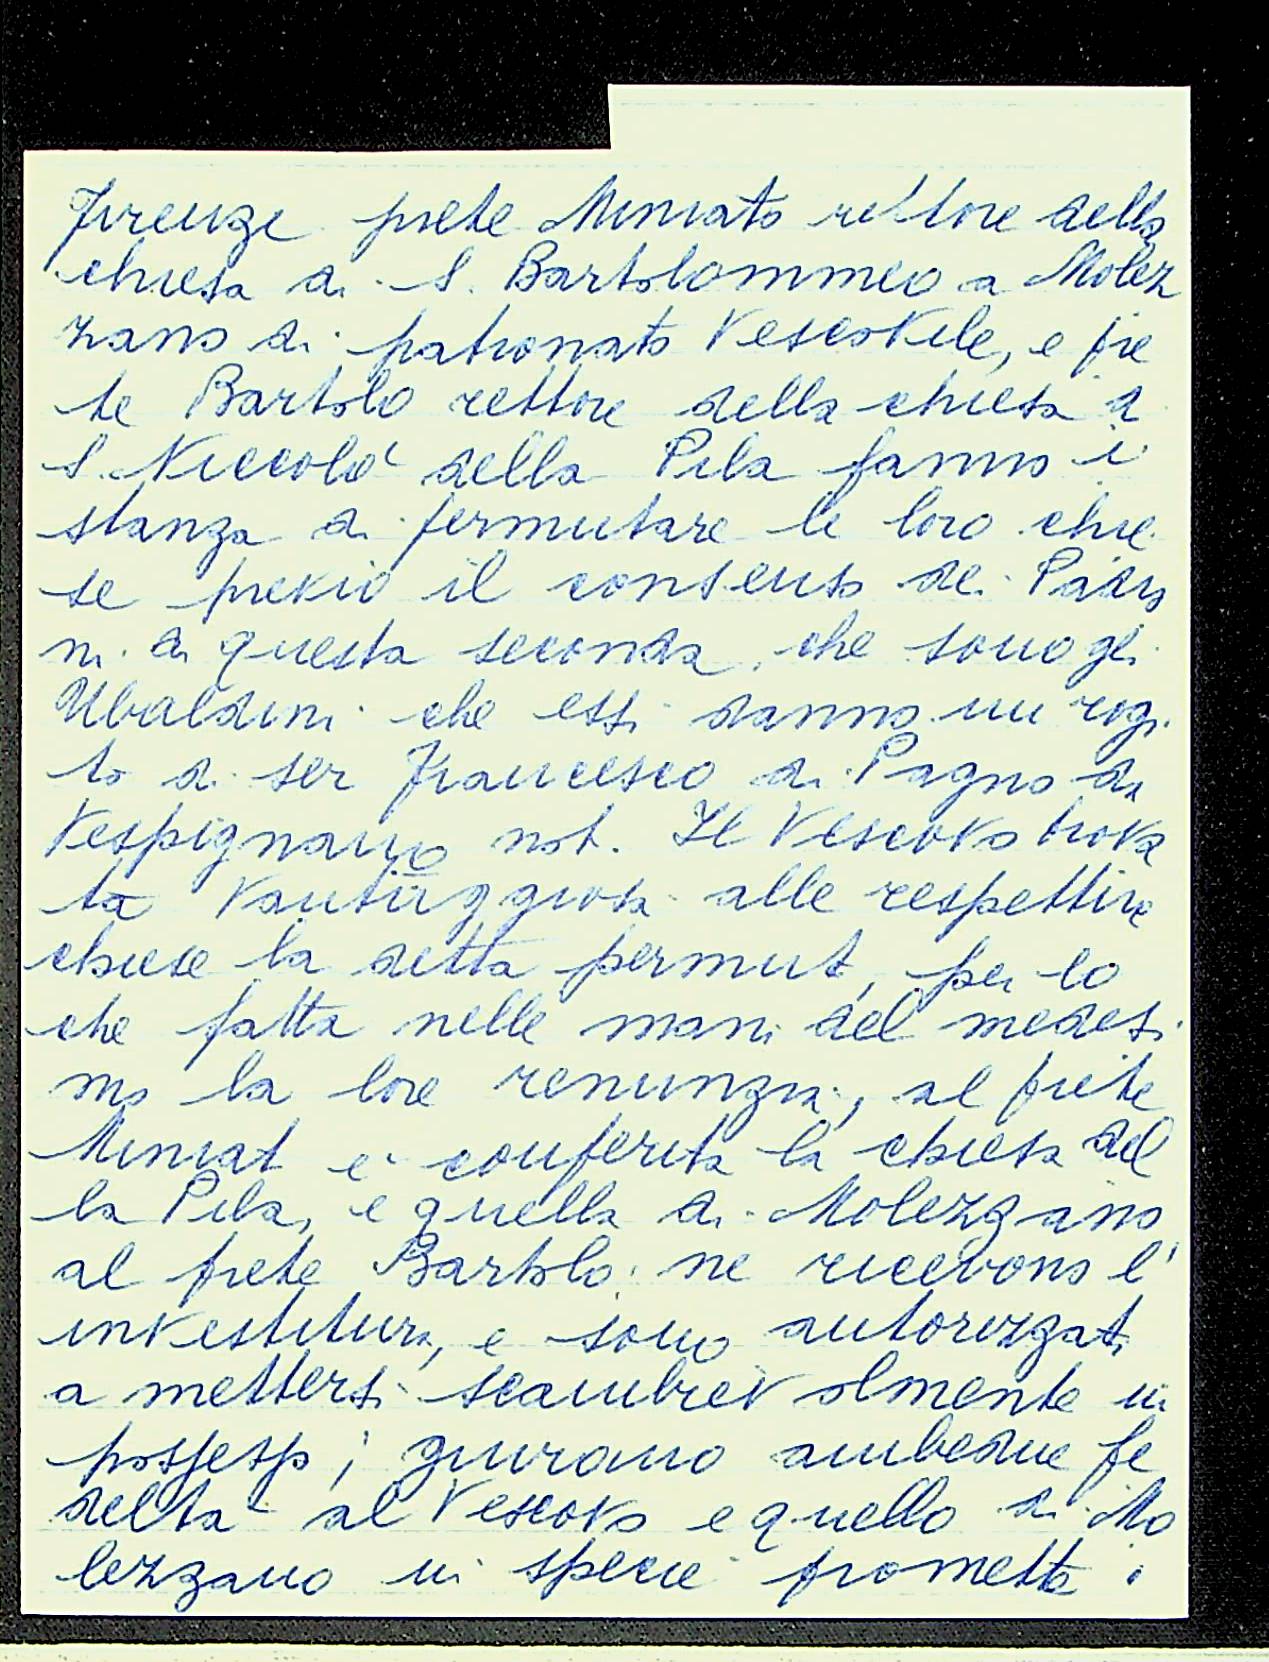 Firenze prete Miniato rettore della
chiesa di S. Bartolommeo a Molez
zano di patronato Vescovile, e pre
te Bartolo rettore della chiesa d
S. Niccolò della Pila fanno i
stanza di permutare le loro chie
se previo il consenso dei Padro
ni di questa seconda, che sono gli
Ubaldini che essi danno un rogi
to di ser Francesco di Pagno da
Vespignano not. Il Vescovo trova
ta vantaggiosa alle respettive
chiese la detta permut, per lo
che fatta nelle mani del medesi
mo la lore renunzia, al prete
Miniat è conferita la chiesa del
la Pila, e quella di Molezzano
al prete Bartolo; ne ricevono l'
investitura, e sono autorizzati
a mettersi scambievolmente in
possesso; giurano ambedue fe
deltà al Vescovo e quello di Mo
lezzano in specie promette i